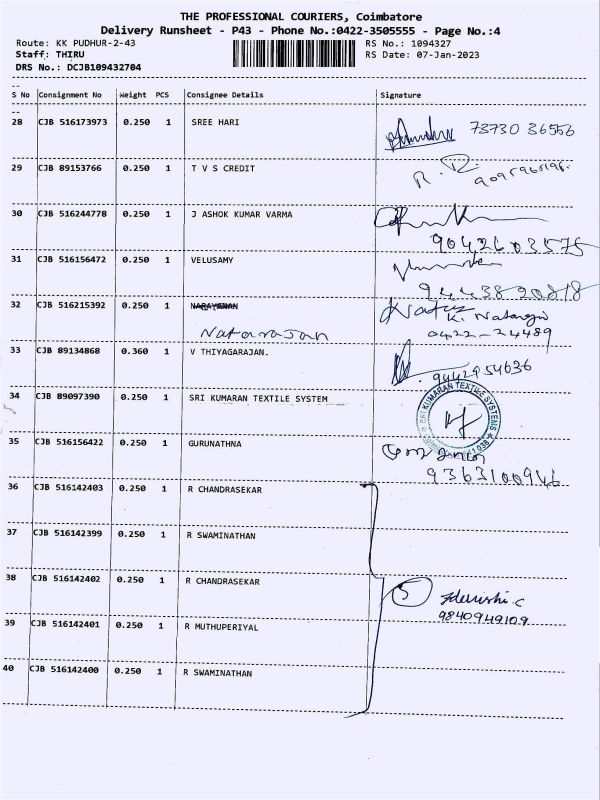 THE PROFESSIONAL COURIERS, Coimbatore
Delivery Runsheet - P43 - Phone No.:0422-3505555 - Page No.:4
Route: KK PUDHUR-2-43 RS No.: 1094327
Staff: THIRU RS Date: 07-Jan-2023
DRS No.: DCJB109432704
S No Consignment No Weight PCS Consignee Details Signature
28 CJB 516173973 0.250 1 SREE HARI 73730 36556
29 CJB 89153766 0.250 1 T V S CREDIT R. R.
30 CJB 516244778 0.250 1 J ASHOK KUMAR VARMA
9042603575
31 CJB 516156472 0.250 1 VELUSAMY
9443820818
32 CJB 516215392 0.250 1 NARAYANAN
Natarajan K. Natarajan
0422-24489
33 CJB 89134868 0.360 1 V THIYAGARAJAN.
9442954636
34 CJB 89097390 0.250 1 SRI KUMARAN TEXTILE SYSTEM SRI KUMARAN TEXTILE SYSTEMS
35 CJB 516156422 0.250 1 GURUNATHNA
9363100946
36 CJB 516142403 0.250 1 R CHANDRASEKAR
37 CJB 516142399 0.250 1 R SWAMINATHAN
38 CJB 516142402 0.250 1 R CHANDRASEKAR 5
39 CJB 516142401 0.250 1 R MUTHUPERIYAL 9840949109
40 CJB 516142400 0.250 1 R SWAMINATHAN